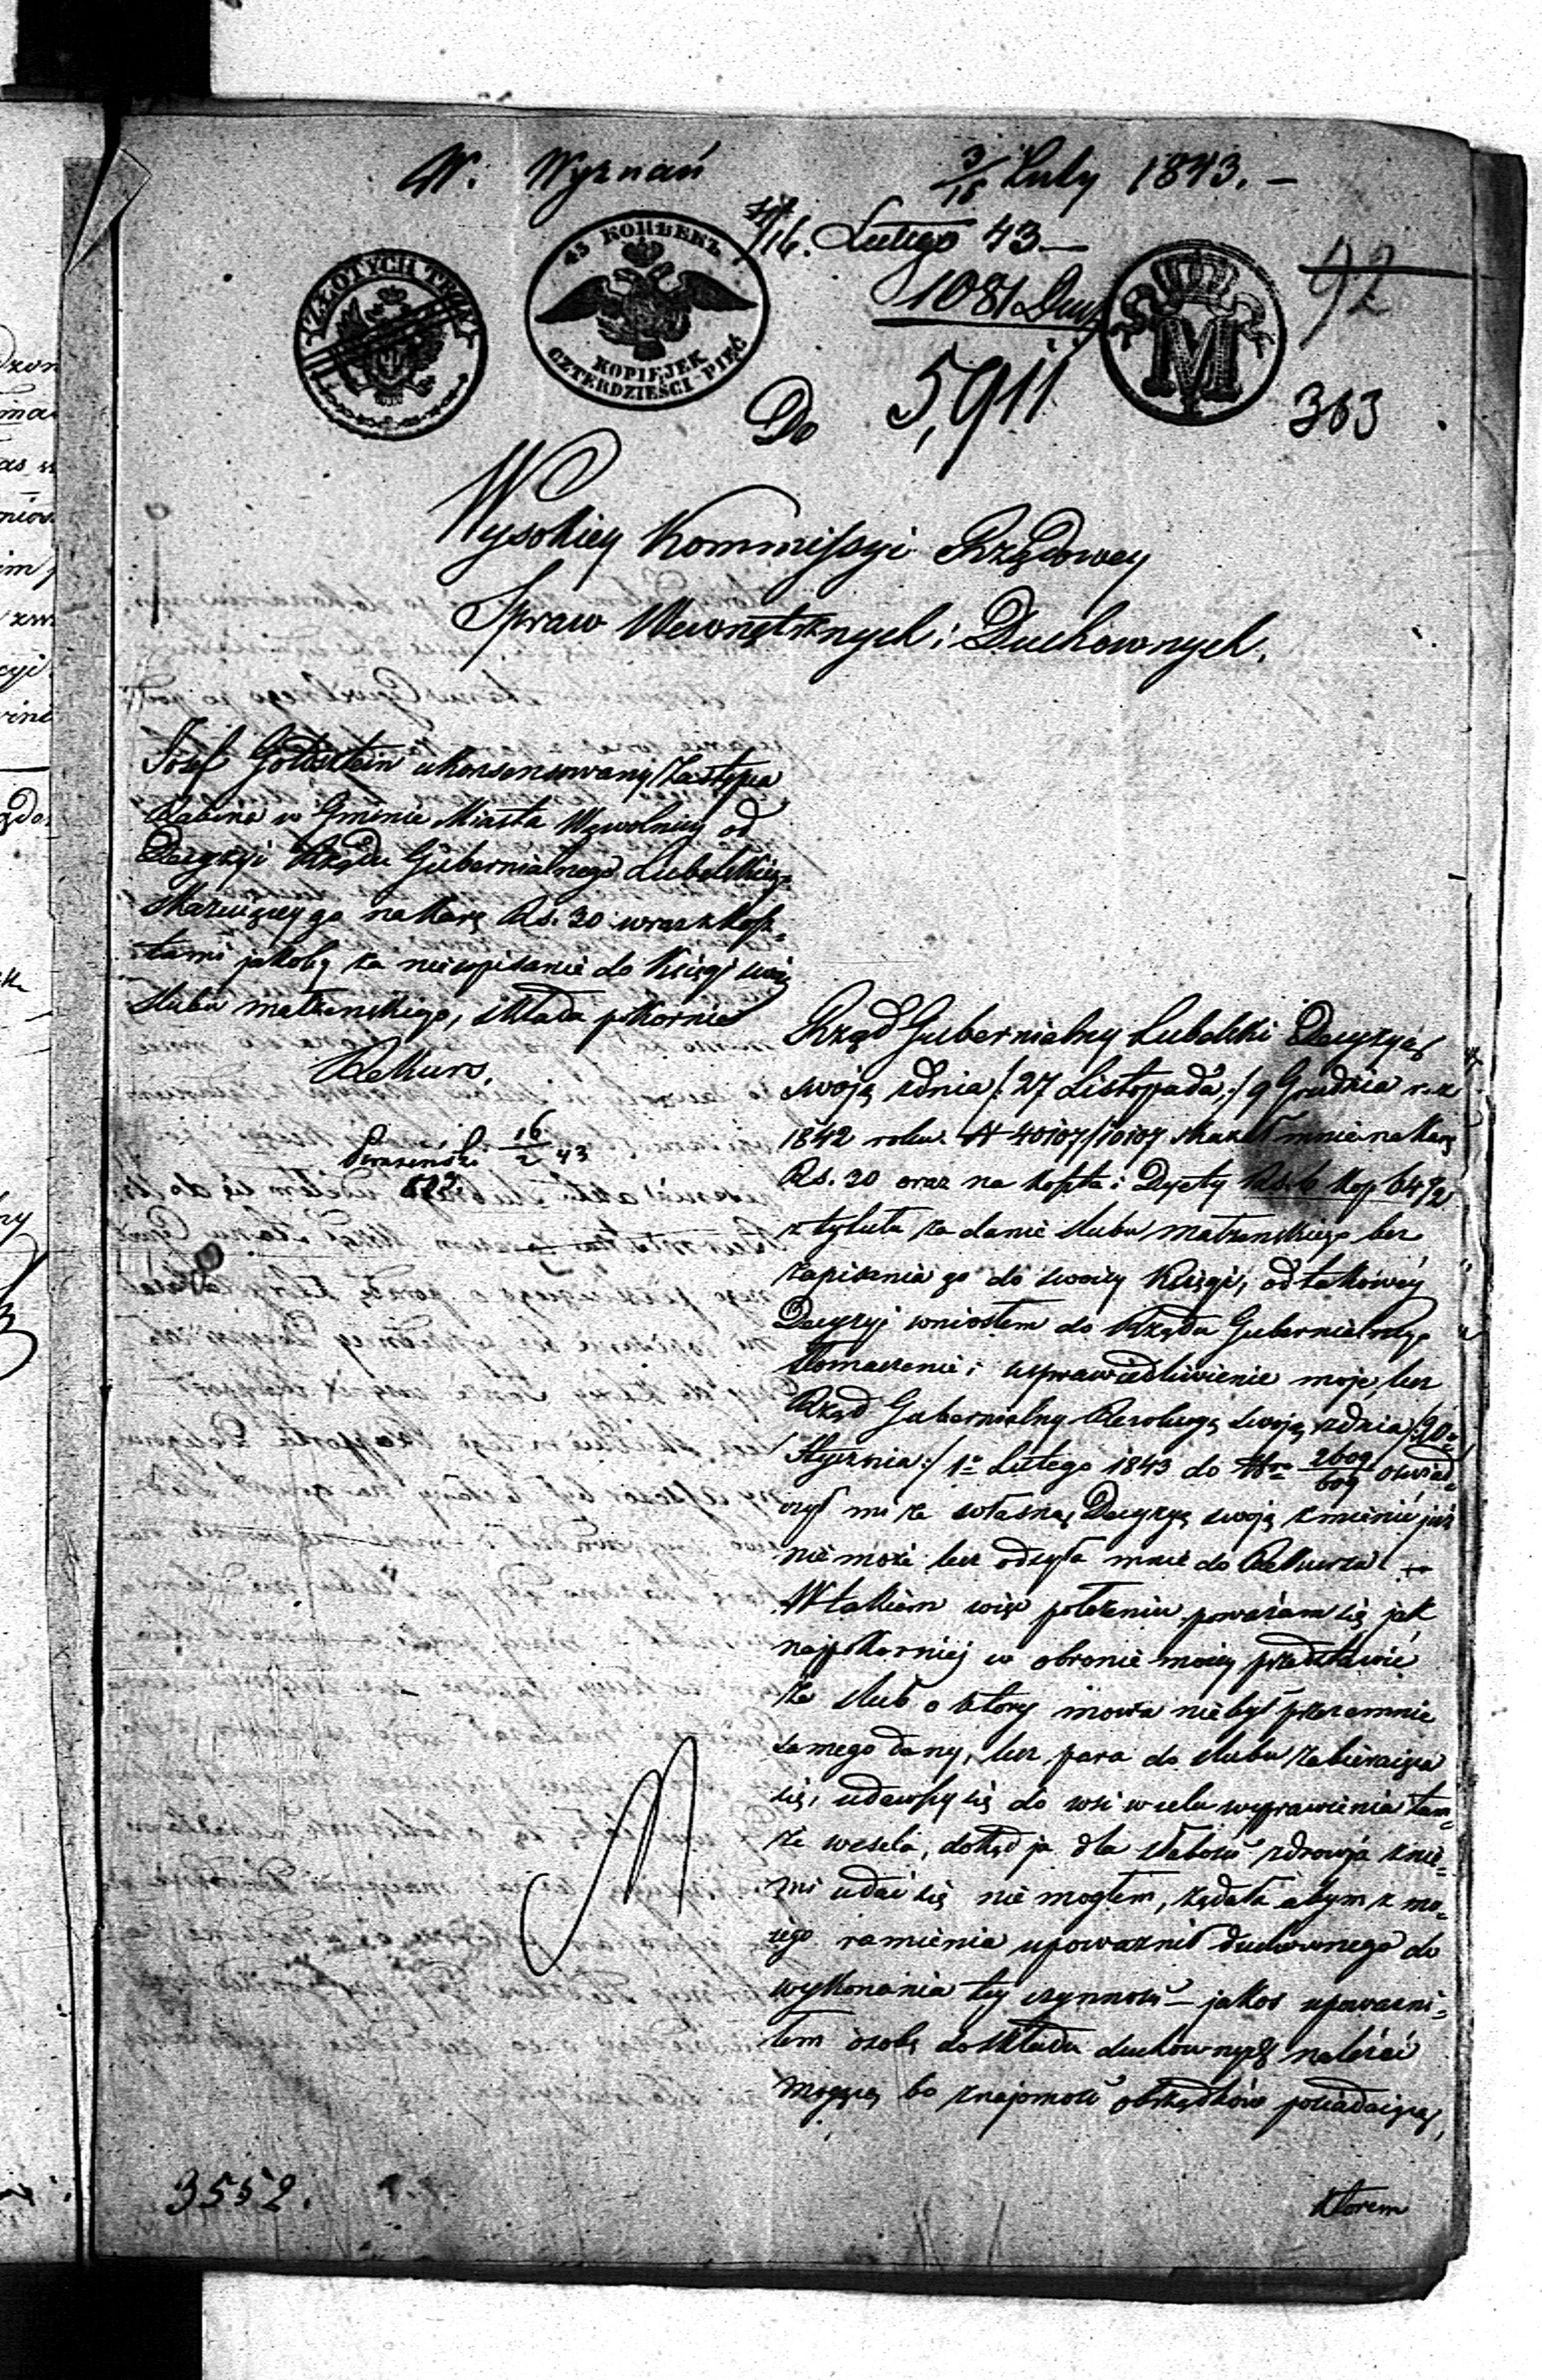 W. Wyznań
3/15 Luty 1843. –
4/16. Lutego 43 –
ZŁOTYCH TRZY
45 КОПѢЕКЪ
KOPIEJEK
CZTERDZIEŚCI PIĘĆ
1081
M
92
5,911
363
Do
Wysokiey Kommissyi Rządowey
Spraw Wewnętrznych i Duchownych.
Josef Goldsztein ukonsensowany Zastępca
Rabina w Gminie Miasta Wąwolnicy od
Decyzyi Rządu Gubernialnego Lubelskieg:
skazuiącey go na karę Rs. 30 wraz z kosz=
tami jakoby za niewpisanie do Księgi swéy
slubu małżenskiego, składa pokornie
Rekurs.
16/2 43
Rząd Gubernialny Lubelski Decyzyią
swoią z dnia /: 27 Listopada :/ 9 Grudnia r. z
1842 roku N 40107/10107 skazał mnie na karę
Rs. 30 oraz na koszta i Dyety Rs. 6 Kop 64 1/2
z tytułu za danie slubu małżenskiego bez
zapisania go do swoiey Księgi, od takowéy
Decyzyi wniosłem do Rządu Gubernialnego
tłomaczenie i usprawiedliwienie moje, lecz
Rząd Gubernialny Rezolucyą swoją z dnia /: 20
Stycznia :/ 1o Lutego 1843 do Nro 2609/609 oswiad=
czył mi że własną Decyzyą swoją zmienić już
nie może lecz odsyła mnie do Rekursu. –
W takiem więc położeniu poważam się jak
najpokorniej w obronie moiey przedstawić
że slub o który mowa nie był przezemnie
samego dany, lecz para do slubu zabieraiąca
się, udawszy się do wsi w celu wyprawienia tam=
że wesela, dokąd ja dla słabości zdrowia z nie=
mi udać się nie mogłem, żądała abym z mo=
jego ramienia upoważnił duchownego do
wykonania tey czynności – jakoż upoważni=
łem osobę do składu duchownych należeć
mogącą bo znajomość obrządków posiadaiącą,
3552.
ktorem